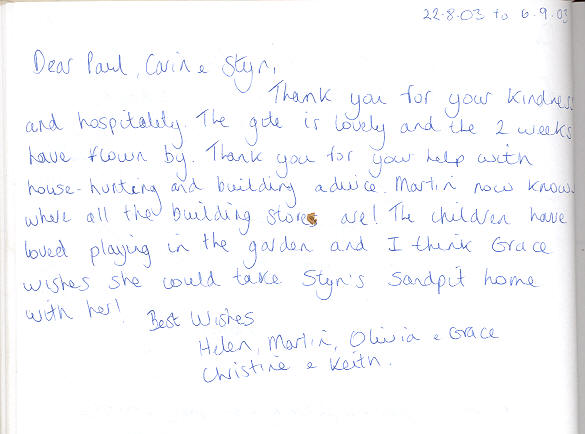 22.8.03 to 6.9.03
Dear Paul, Carin e Styn,
Thank you for your kindness
and hospitality. The gite is lovely and the 2 weeks
have flown by. Thank you for your help with
house-hunting and building advice. Martin now knows
where all the building stores are! The children have
loved playing in the garden and I think Grace
wishes she could take Styn's Sandpit home
with her!
Best Wishes
Helen, Martin, Olivia e Grace
Christine e Keith.